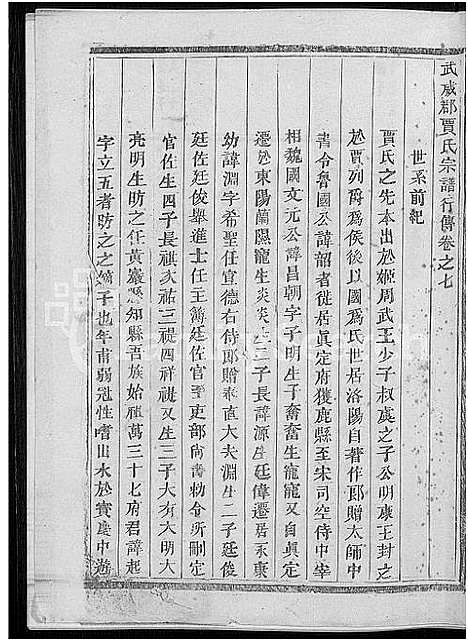 武威郡賈氏宗譜行傳卷之七
世系前紀
賈氏之先本出於姬周武王少子叔虞之子公明康王封之
於賈列爵為侯後以國為氏世居洛陽自著作郎贈太師中
書令魯國公諱韶者徙居真定府獲鹿縣至宋司空侍中宰
相魏國文元公諱昌朝字子明生子奮奮生寵寵又自真定
遷於東陽蘭隰寵生炎炎生二子長諱源生廷偉遷居永東
幼諱淵字希聖任宣德右侍郎贈奉直大夫淵生二子廷俊
廷佐廷俊舉進士任王簿廷佐官至吏部尚書勅令所嗣定
官佐生四子長祺次祐三禔四祥禔又生三子大有大明大
亮明生昉之任黃巖縣知縣吾族始祖萬三十七府君諱起
字立五者昉之之嫡子也年甫弱冠性嗜山水於寶慶中遊